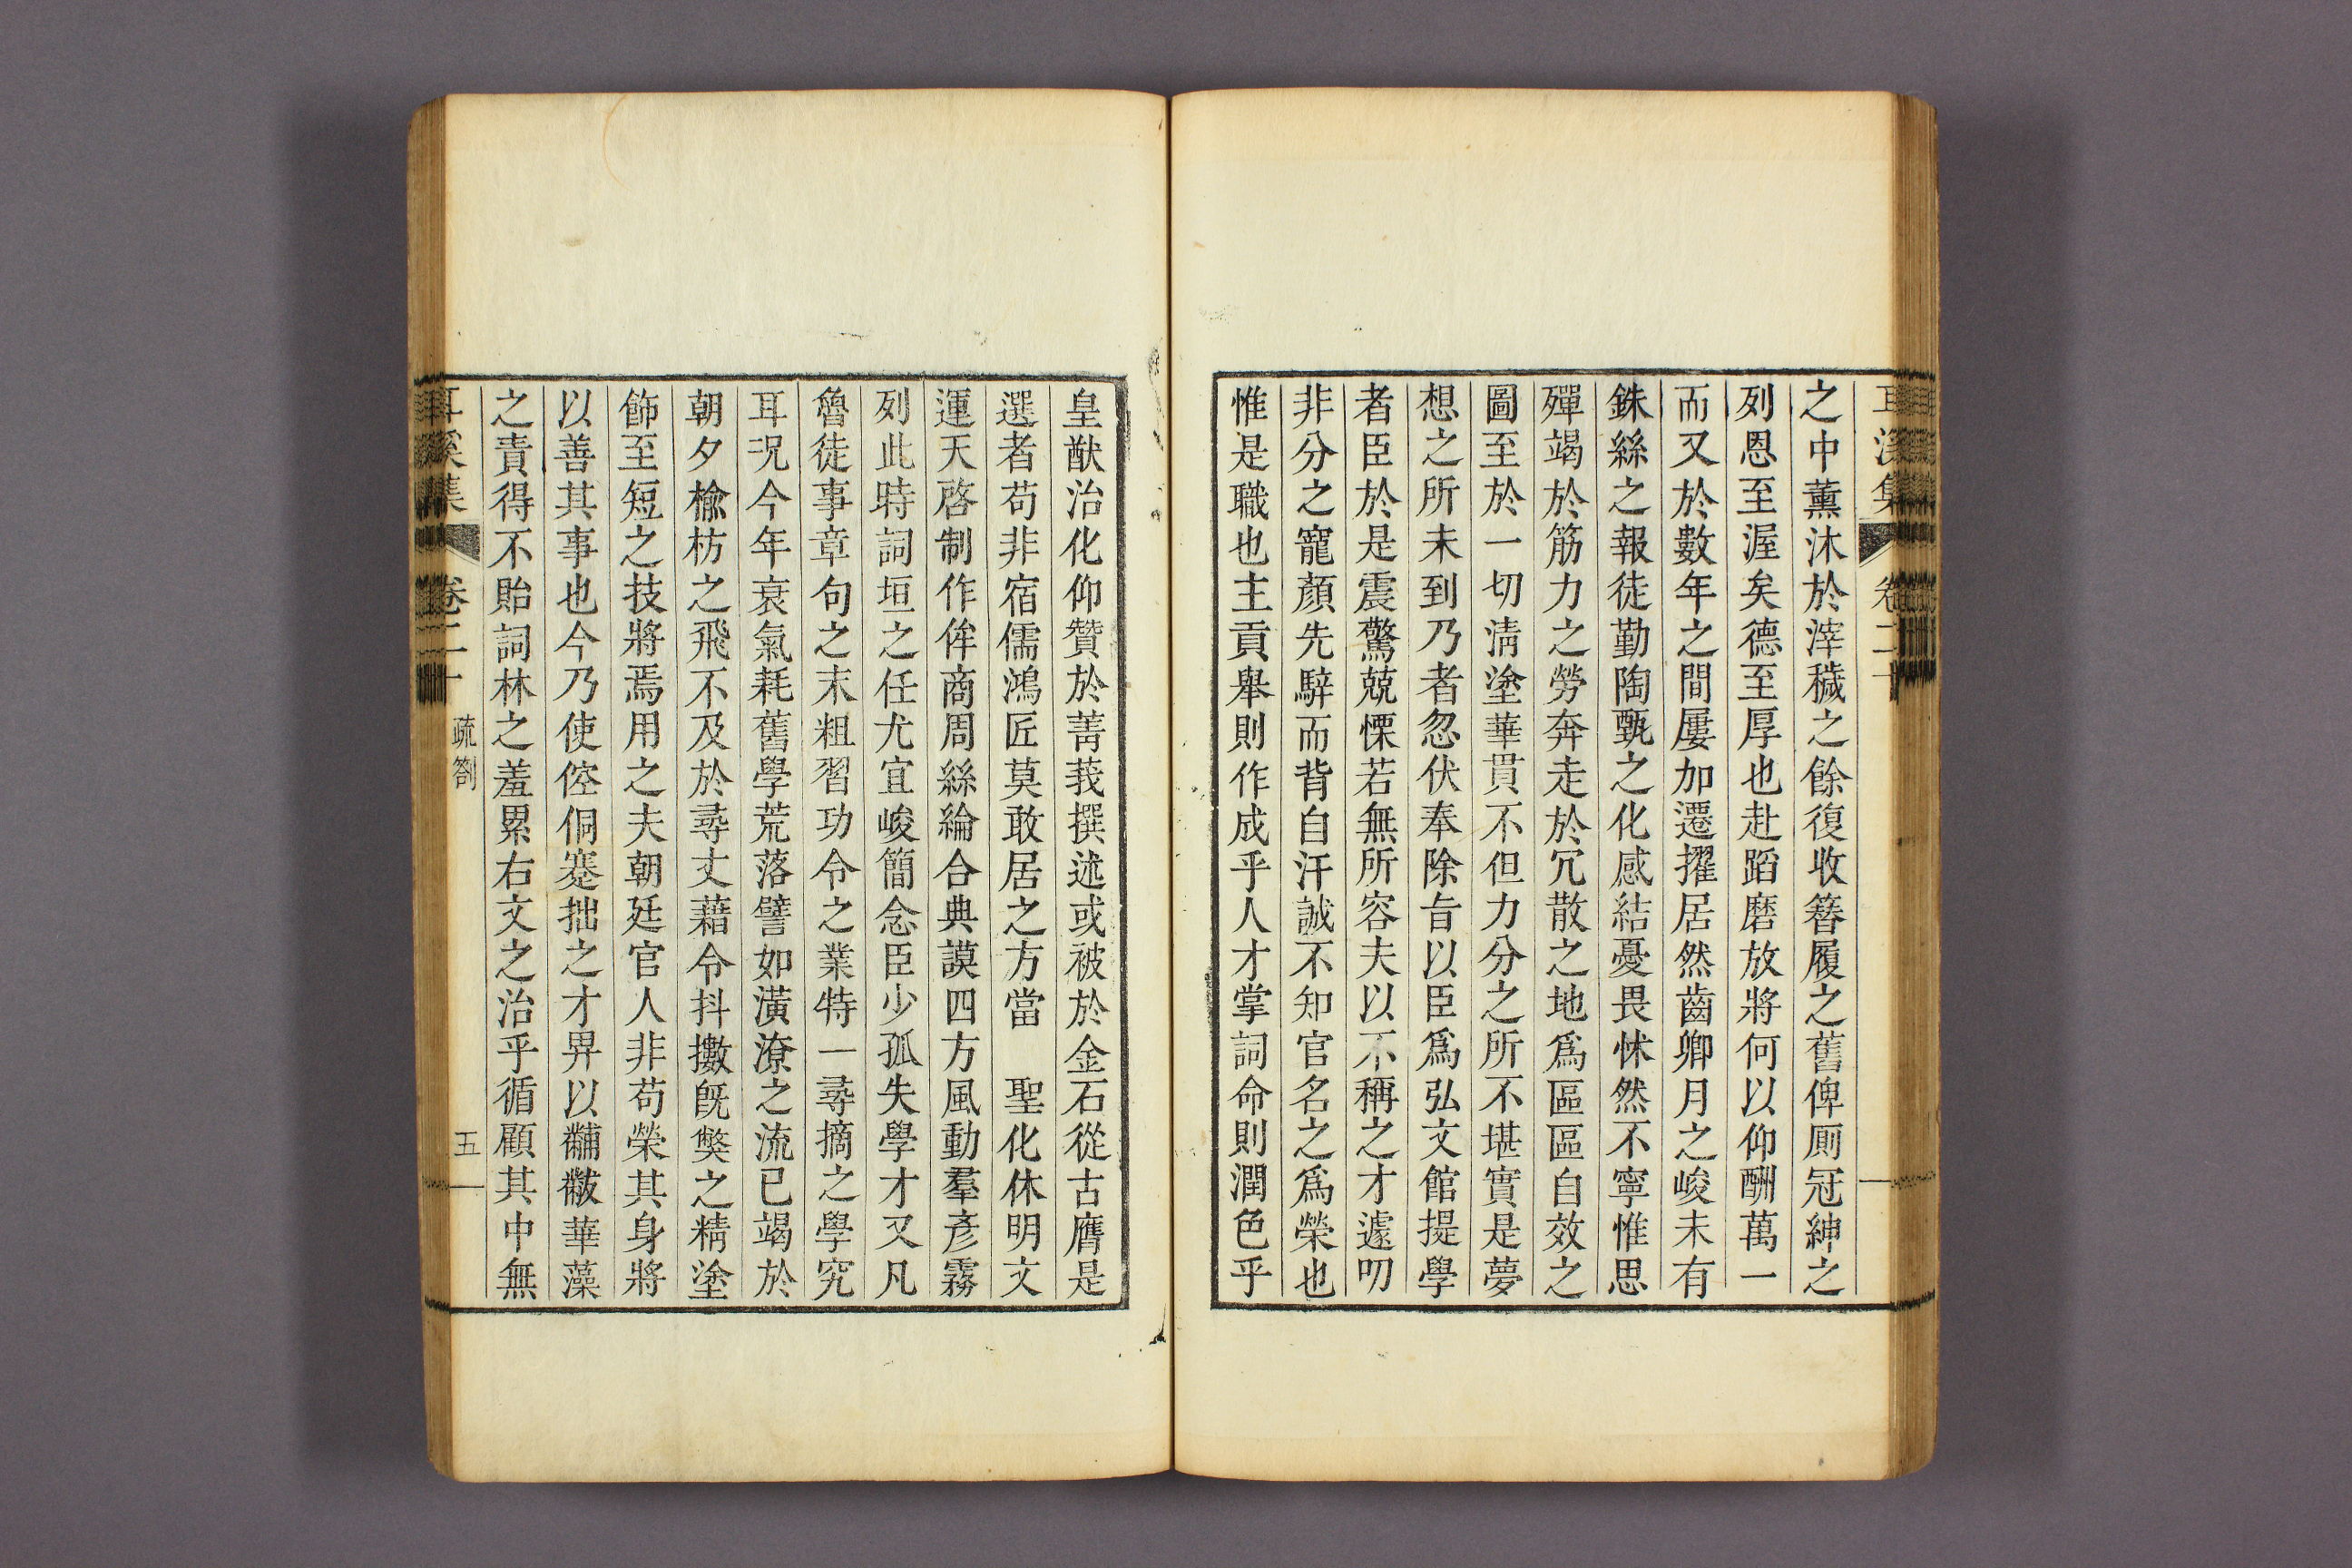 耳溪集 卷二十
之中薰沐於滓穢之餘復收簪履之舊俾厠冠紳之
列恩至渥矣德至厚也赴蹈磨放將何以仰酬萬一
而又於數年之間屢加遷擢居然齒卿月之峻未有
銖絲之報徒勤陶甄之化感結憂畏怵然不寧惟思
殫竭於筋力之勞奔走於冗散之地爲區區自效之
圖至於一切淸塗華貫不但力分之所不堪實是夢
想之所未到乃者忽伏奉除旨以臣爲弘文館提學
者臣於是震驚兢慄若無所容夫以不稱之才遽叨
非分之寵顏先騂而背自汗誠不知官名之爲榮也
惟是職也主貢舉則作成乎人才掌詞命則潤色乎
皇猷治化仰贊於菁莪撰述或被於金石從古膺是
選者苟非宿儒鴻匠莫敢居之方當 聖化休明文
運天啓制作侔商周絲綸合典謨四方風動羣彦霧
列此時詞垣之任尤宜峻簡念臣少孤失學才又凡
魯徒事章句之末粗習功令之業特一尋摘之學究
耳况今年衰氣耗舊學荒落譬如潢潦之流已竭於
朝夕楡枋之飛不及於尋丈藉令抖擻旣獘之精塗
飾至短之技將焉用之夫朝廷官人非苟榮其身將
以善其事也今乃使倥侗蹇拙之才畀以黼黻華藻
之責得不貽詞林之羞累右文之治乎循顧其中無
耳溪集 卷二十 疏劄 五